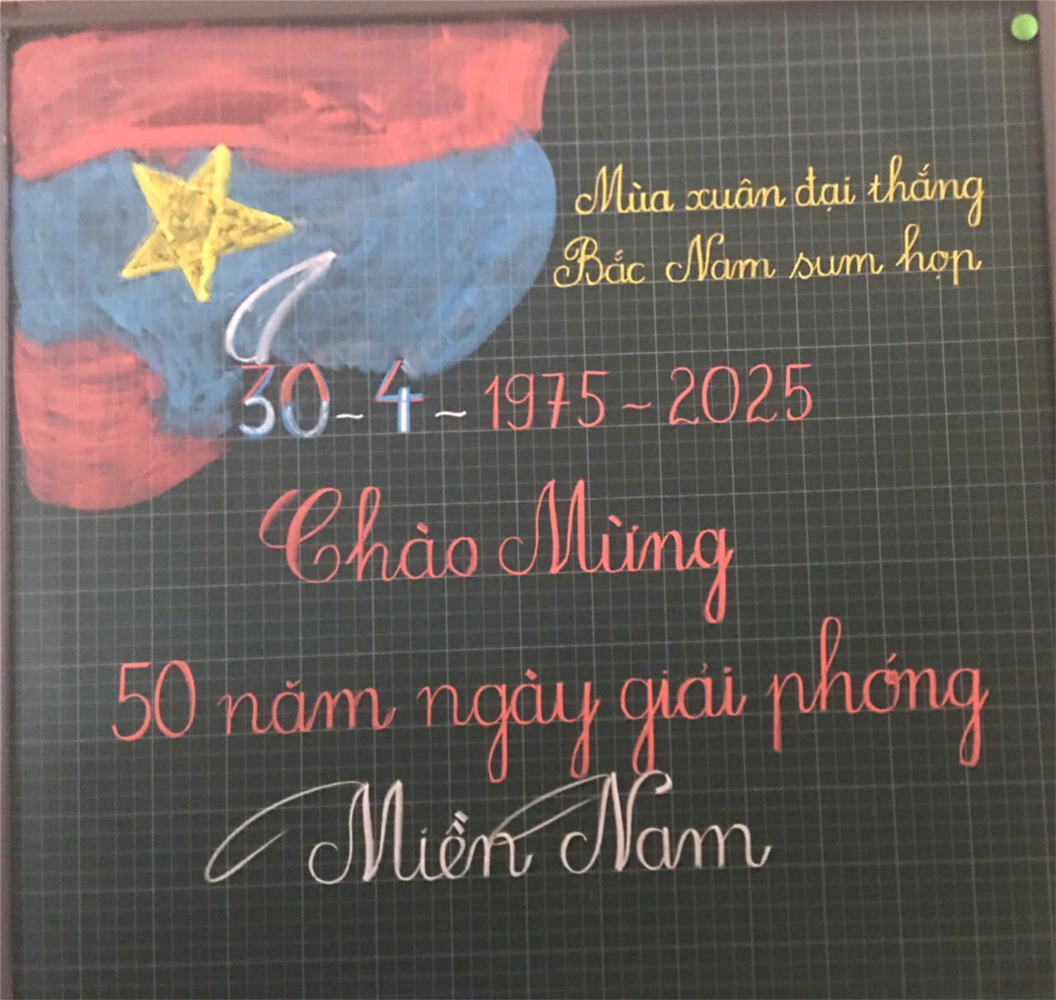 Mùa xuân đại thắng
Bắc Nam sum họp
30 ~ 4 ~ 1975 ~ 2025
Chào Mừng
50 năm ngày giải phóng
Miền Nam